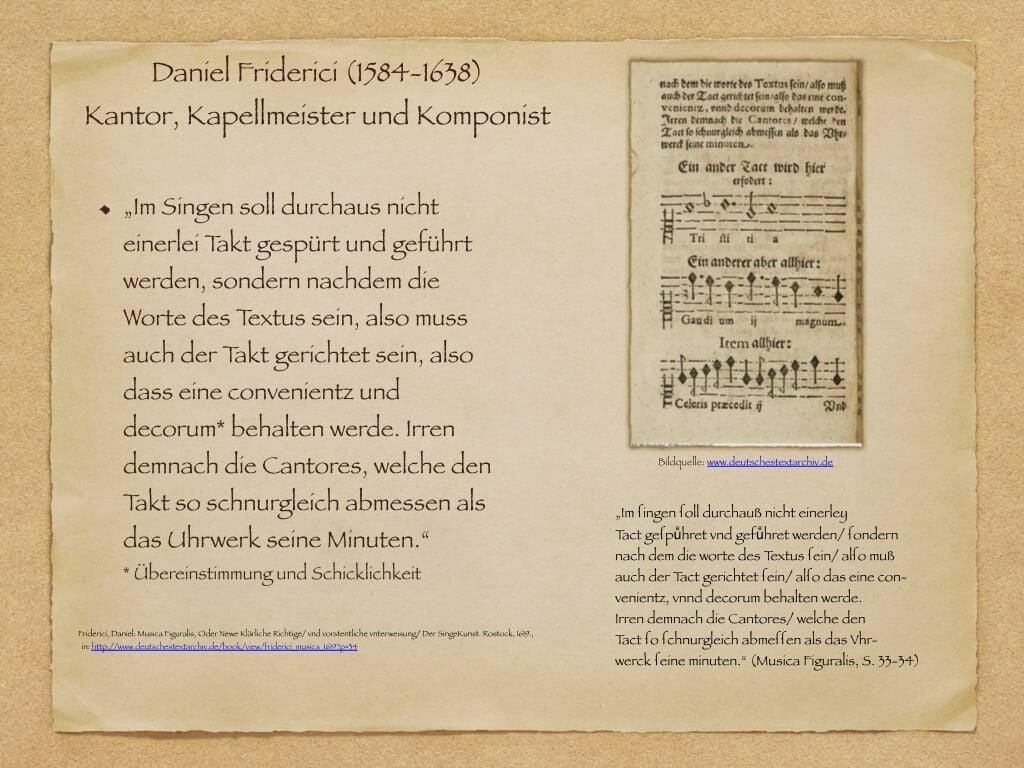 Daniel Friderici (1584-1638)
Kantor, Kapellmeister und Komponist
„Im Singen soll durchaus nicht
einerlei Takt gespürt und geführt
werden, sondern nachdem die
Worte des Textus sein, also muss
auch der Takt gerichtet sein, also
dass eine convenientz und
decorum* behalten werde. Irren
demnach die Cantores, welche den
Takt so schnurgleich abmessen als
das Uhrwerk seine Minuten.“
* Übereinstimmung und Schicklichkeit
Friderici, Daniel: Musica Figuralis, Oder Newe Klärliche Richtige/ vnd vorstentliche vnterweisung/ Der SingeKunst. Rostock, 1619.,
in: http://www.deutschestextarchiv.de/book/view/friderici_musica_1619?p=34
nach dem die worte des Textus sein/ also muß
auch der Tact gerichtet sein/ also das eine con-
venientz, vnnd decorum behalten werde.
Irren demnach die Cantores/ welche den
Tact so schnurgleich abmessen als das Vhr-
werck seine minuten.
Ein ander Tact wird hier
erfodert:
Tri sti ti a
Ein anderer aber allhier:
Gaudi um ij magnum.
Item allhier:
Celeris præcedit ij Vnd
Bildquelle: www.deutschestextarchiv.de
„Im ſingen ſoll durchauß nicht einerley
Tact geſpůhret vnd gefůhret werden/ ſondern
nach dem die worte des Textus ſein/ alſo muß
auch der Tact gerichtet ſein/ alſo das eine con-
venientz, vnnd decorum behalten werde.
Irren demnach die Cantores/ welche den
Tact ſo ſchnurgleich abmeſſen als das Vhr-
werck ſeine minuten.“ (Musica Figuralis, S. 33-34)